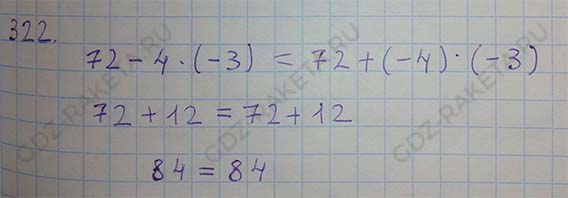 322.
72 - 4 · (-3) = 72 + (-4) · (-3)
72 + 12 = 72 + 12
84 = 84
GDZ-RAKETA.RU
GDZ-RAKETA.RU
GDZ-RAKETA.RU